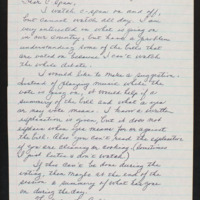 Dear C Span,
I watch c-span on and off,
but cannot watch all day. I am
very interested in what is going on
in our country, but have a problem
understanding some of the bills that
are voted on because I can't watch
the whole debate.
I would like to make a suggestion.
Instead of playing music while the
vote is going on, it would help if a
summary of the bill and what a yes
or nay vote means. I know a written
explanation is given, but it does not
explain what yes means for or against
the bill. Also you can't read the explanation
if you are cleaning or cooking. (Sometimes
I just listen & don't watch)
If this can't be done during the
voting, then maybe at the end of the
session a summary of what has gone
on during the day.